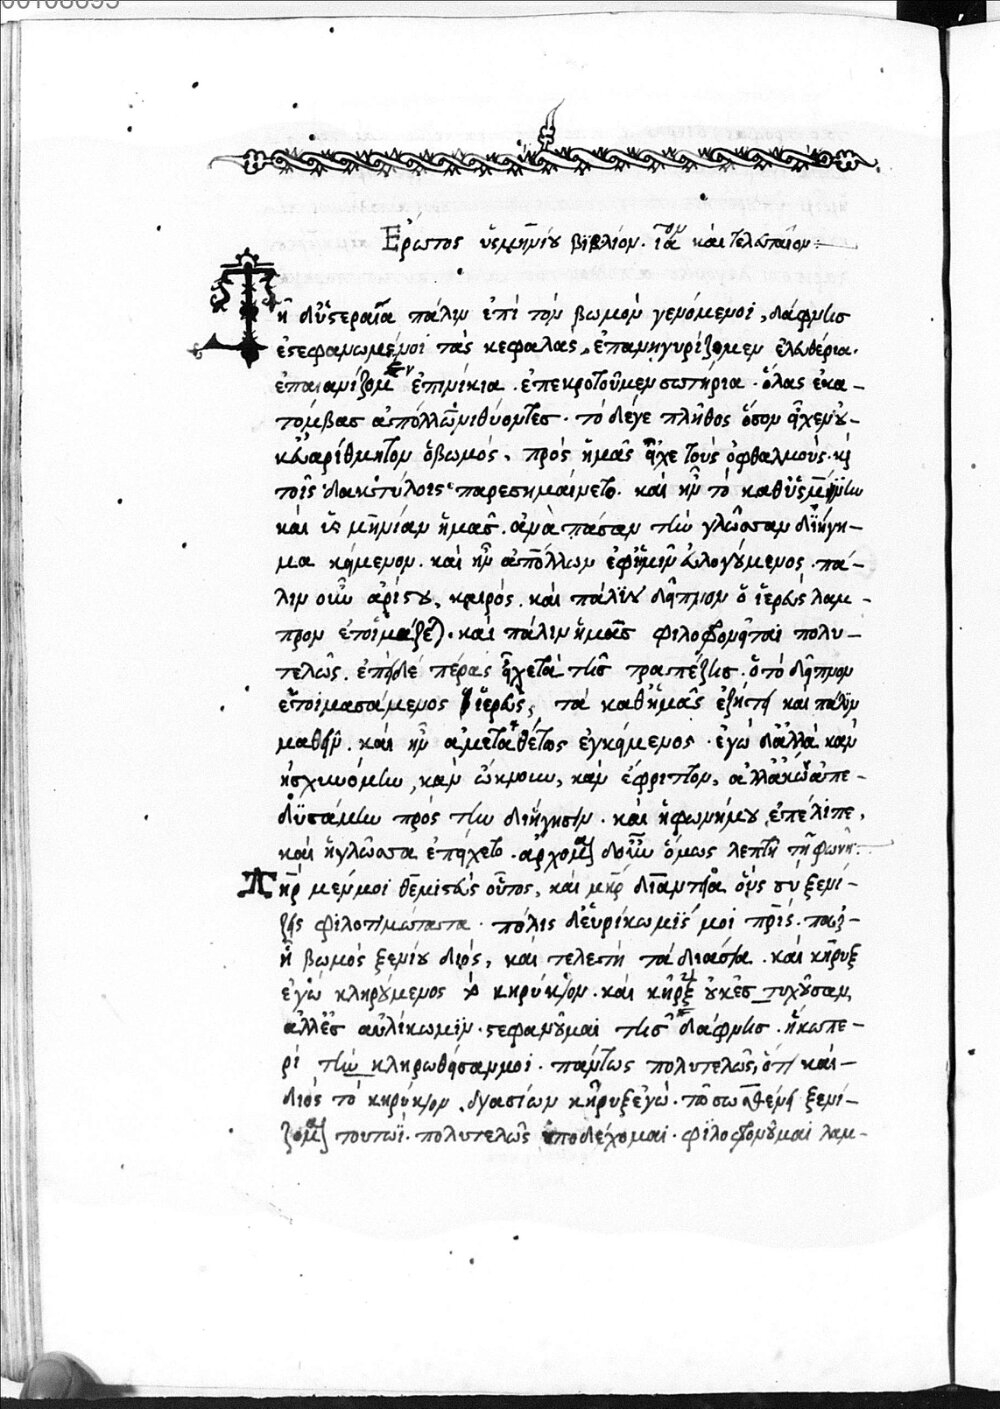 00108695
Ἔρωτος ὑσμηνίου βιβλίον · ια^ον καὶ τελευταῖον :
Τῆ δευτεραία πάλιν ἐπὶ τὸν βωμὸν γενόμενοι, δάφνης
ἐστεφανωμένοι τὰς κεφαλὰς, ἐπανηγυρίζομεν ἐλευθέρια ·
ἐπαιανίζομεν ἐπινίκια · ἐπεκροτοῦμεν σωτήρια · ὅλας ἑκα–
τόμβας ἀπόλλωνι θύοντες · τὸ δέγε πλῆθος ὅσον ἦχεν οὐ–
κ ἀρίθμητον ὁ βωμός, πρὸς ἡμᾶς εἶχε τοὺς ὀφθαλμούς · κὶ
τοῖς δακτύλοις παρεσημαίνετο · καὶ ἦν τὸ καθ' ὑσμίνην
καὶ ὑσμηνίαν ἡμᾶς · ἀνὰ πᾶσαν τὴν γλῶσσαν διήγη–
μα κείμενον · καὶ ἦν ἀπόλλων ἐφ' ἡμῖν εὐλογούμενος · πά–
λιν οὖν ἀρίστου, καιρός · καὶ πάλιν δεῖπνον ὁ ἱερεὺς λαμ–
πρὸν ἑτοιμάζει · καὶ πάλιν ἡμᾶς φιλοφρονεῖται πολυ–
τελῶς · ἐπεὶ δὲ πέρας εἶχε τὰ τῆς τραπέζης · ὁ τὸ δεῖπνον
ἑτοιμασάμενος ἱερεὺς, τὰ καθ' ἡμᾶς ἐζήτει καὶ πάλιν
μαθεῖν · καὶ ἦν ἀμεταθέτως ἐγκείμενος · ἐγὼ δ' ἀλλὰ κἂν
ἠσχυνόμην, κἂν ὤκνουν, κἂν ἔφριττον, ἀλλὰ κἂν ἀπε–
δυσάμην πρὸς τὴν διήγησιν · καὶ ἡ φωνή μου ἐπέλιπε,
καὶ ἡ γλῶσσα ἐπείχετο · ἄρχομαι δ' οὖν ὅμως λεπτῆ τῆ φωνῆ :
πρ μέν μοι θεμιστεὺς οὗτος, καὶ μηρ διάντεια οὓς σὺ ξενί–
ζεις φιλοτιμώτατα · πόλις δ' εὐρύκωμίς μοι πρίς · παρ'
ἧ βωμὸς ξενίου διός, καὶ τελετὴ τὰ διάσια · καὶ κῆρυξ
ἐγὼ κληρούμενος πρ κηρύκιον · καὶ κῆρυξ οὐκ ἐς τυχοῦσαν,
ἀλλ' ἐς αὐλίκωμιν · στεφανοῦμαι τῆς δάφνης · ἥκω πε–
ρὶ τὴν κληρωθεῖσάν μοι · πάντως πολυτελῶς, ὅτι καὶ–
διὸς τὸ κηρύκιον, δυασίων κῆρυξ ἐγώ · τῶ σωσθένει ξενί–
ζομαι τουτωΐ · πολυτελῶς ὑποδέχομαι · φιλοφρονοῦμαι λαμ–